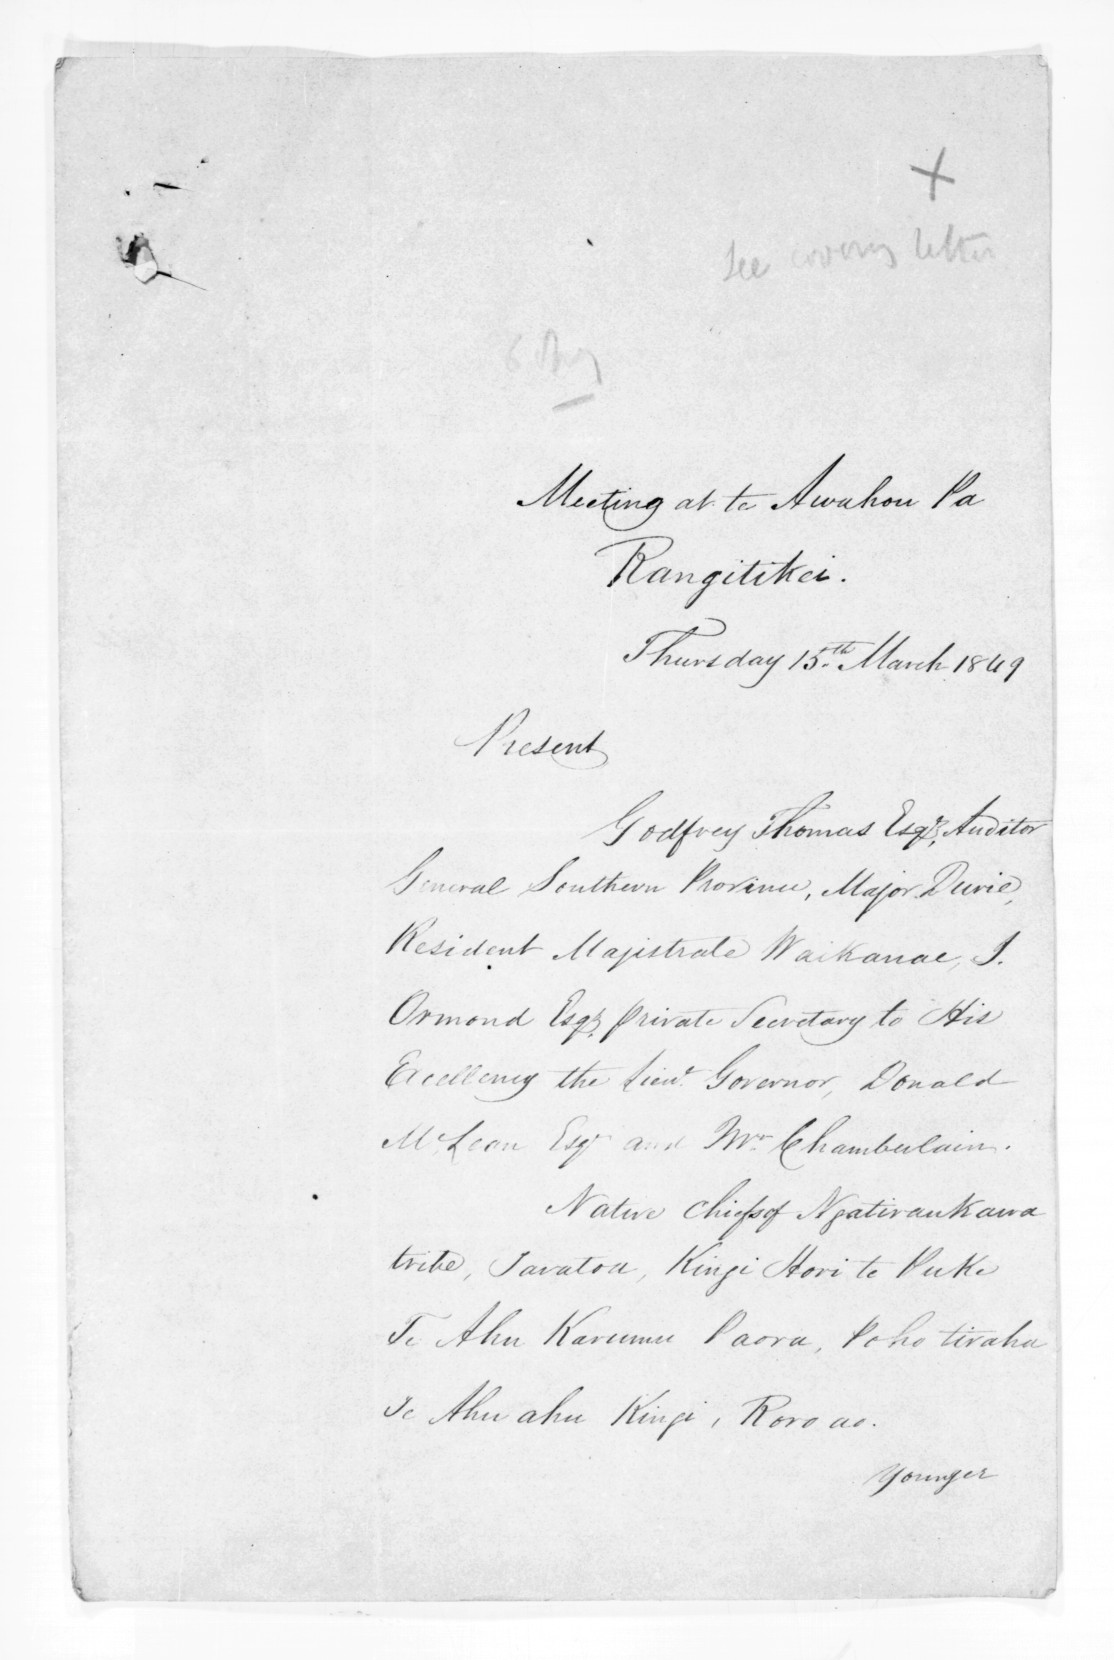 X
See covering letter
Meeting at te Awahou Pa
Rangitikei.
Thursday 15th March 1849
Present
Godfrey Thomas Esqr, Auditor
General Southern Province, Major Durie,
Resident Magistrate Waikanae, J.
Ormond Esqr private Secretary to His
Excellency the Lieut. Governor, Donald
McLean Esqr and Mr. Chamberlain.
Native chiefs of Ngatiraukawa
tribe, Taratoa, Kingi Hori te Puke
Te Ahu Karumu Paora, Poho tiraha
Te Ahu ahu Kingi, Roro ao.
Younger